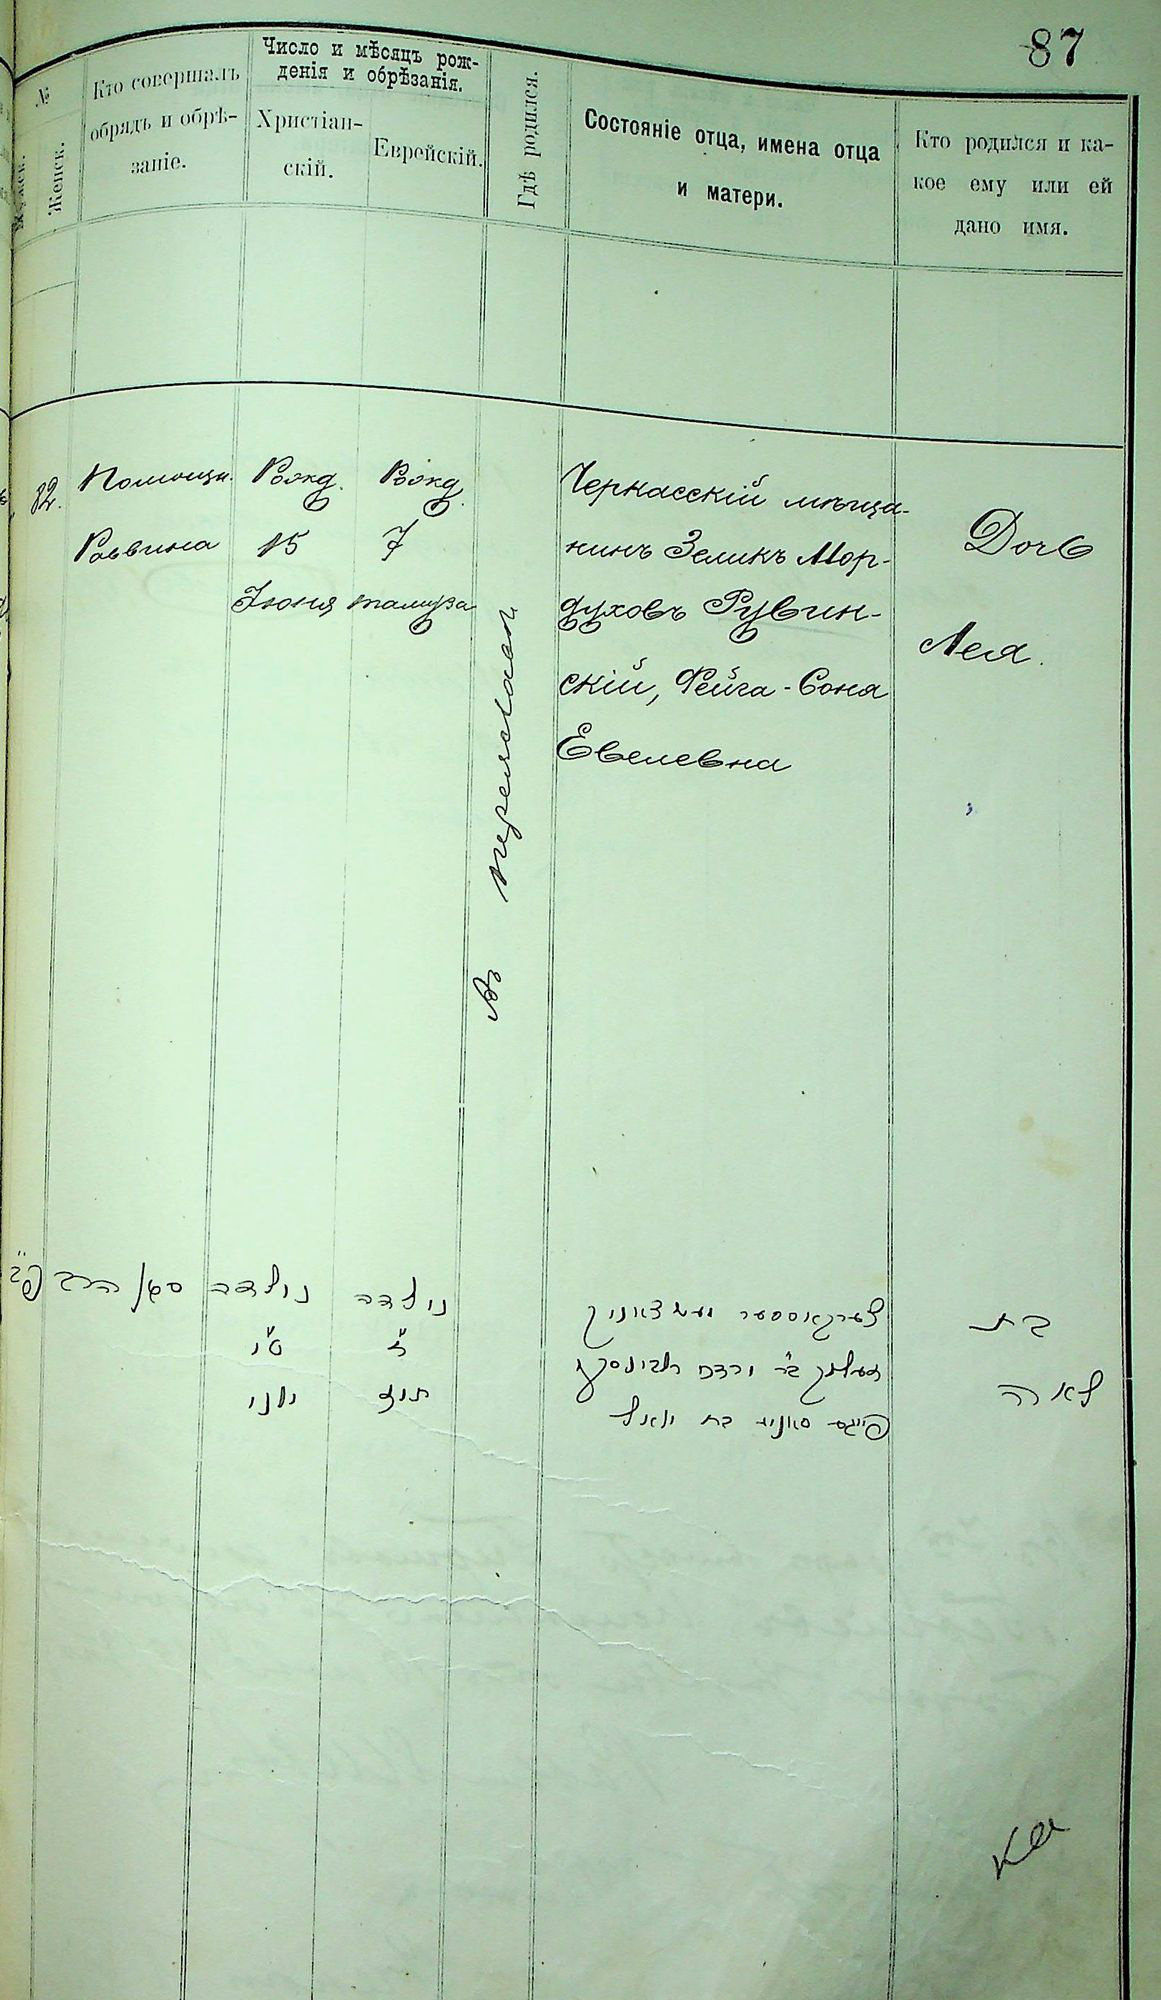 87
№
Мужск.
Женск.
Кто совершалъ
обрядъ и обрѣ-
заніе.
Число и мѣсяцъ рож-
денія и обрѣзанія.
Христіан-
скій.
Еврейскій.
Гдѣ родился.
Состояніе отца, имена отца
и матери.
Кто родился и ка-
кое ему или ей
дано имя.
82.
Помощн.
Раввина
Рожд.
15
Іюня
Рожд.
7
тамуза
Въ
Черкасскій мѣща-
нинъ Зеликъ Мор-
духовъ Рувин-
скій, Фейга-Соня
Евелевна
Дочь
Лея.
הרב
נולדה
ט״ו
יוני
נולדה
ז׳
תמוז
פייגע סאניע בת יואל
בת
לאה